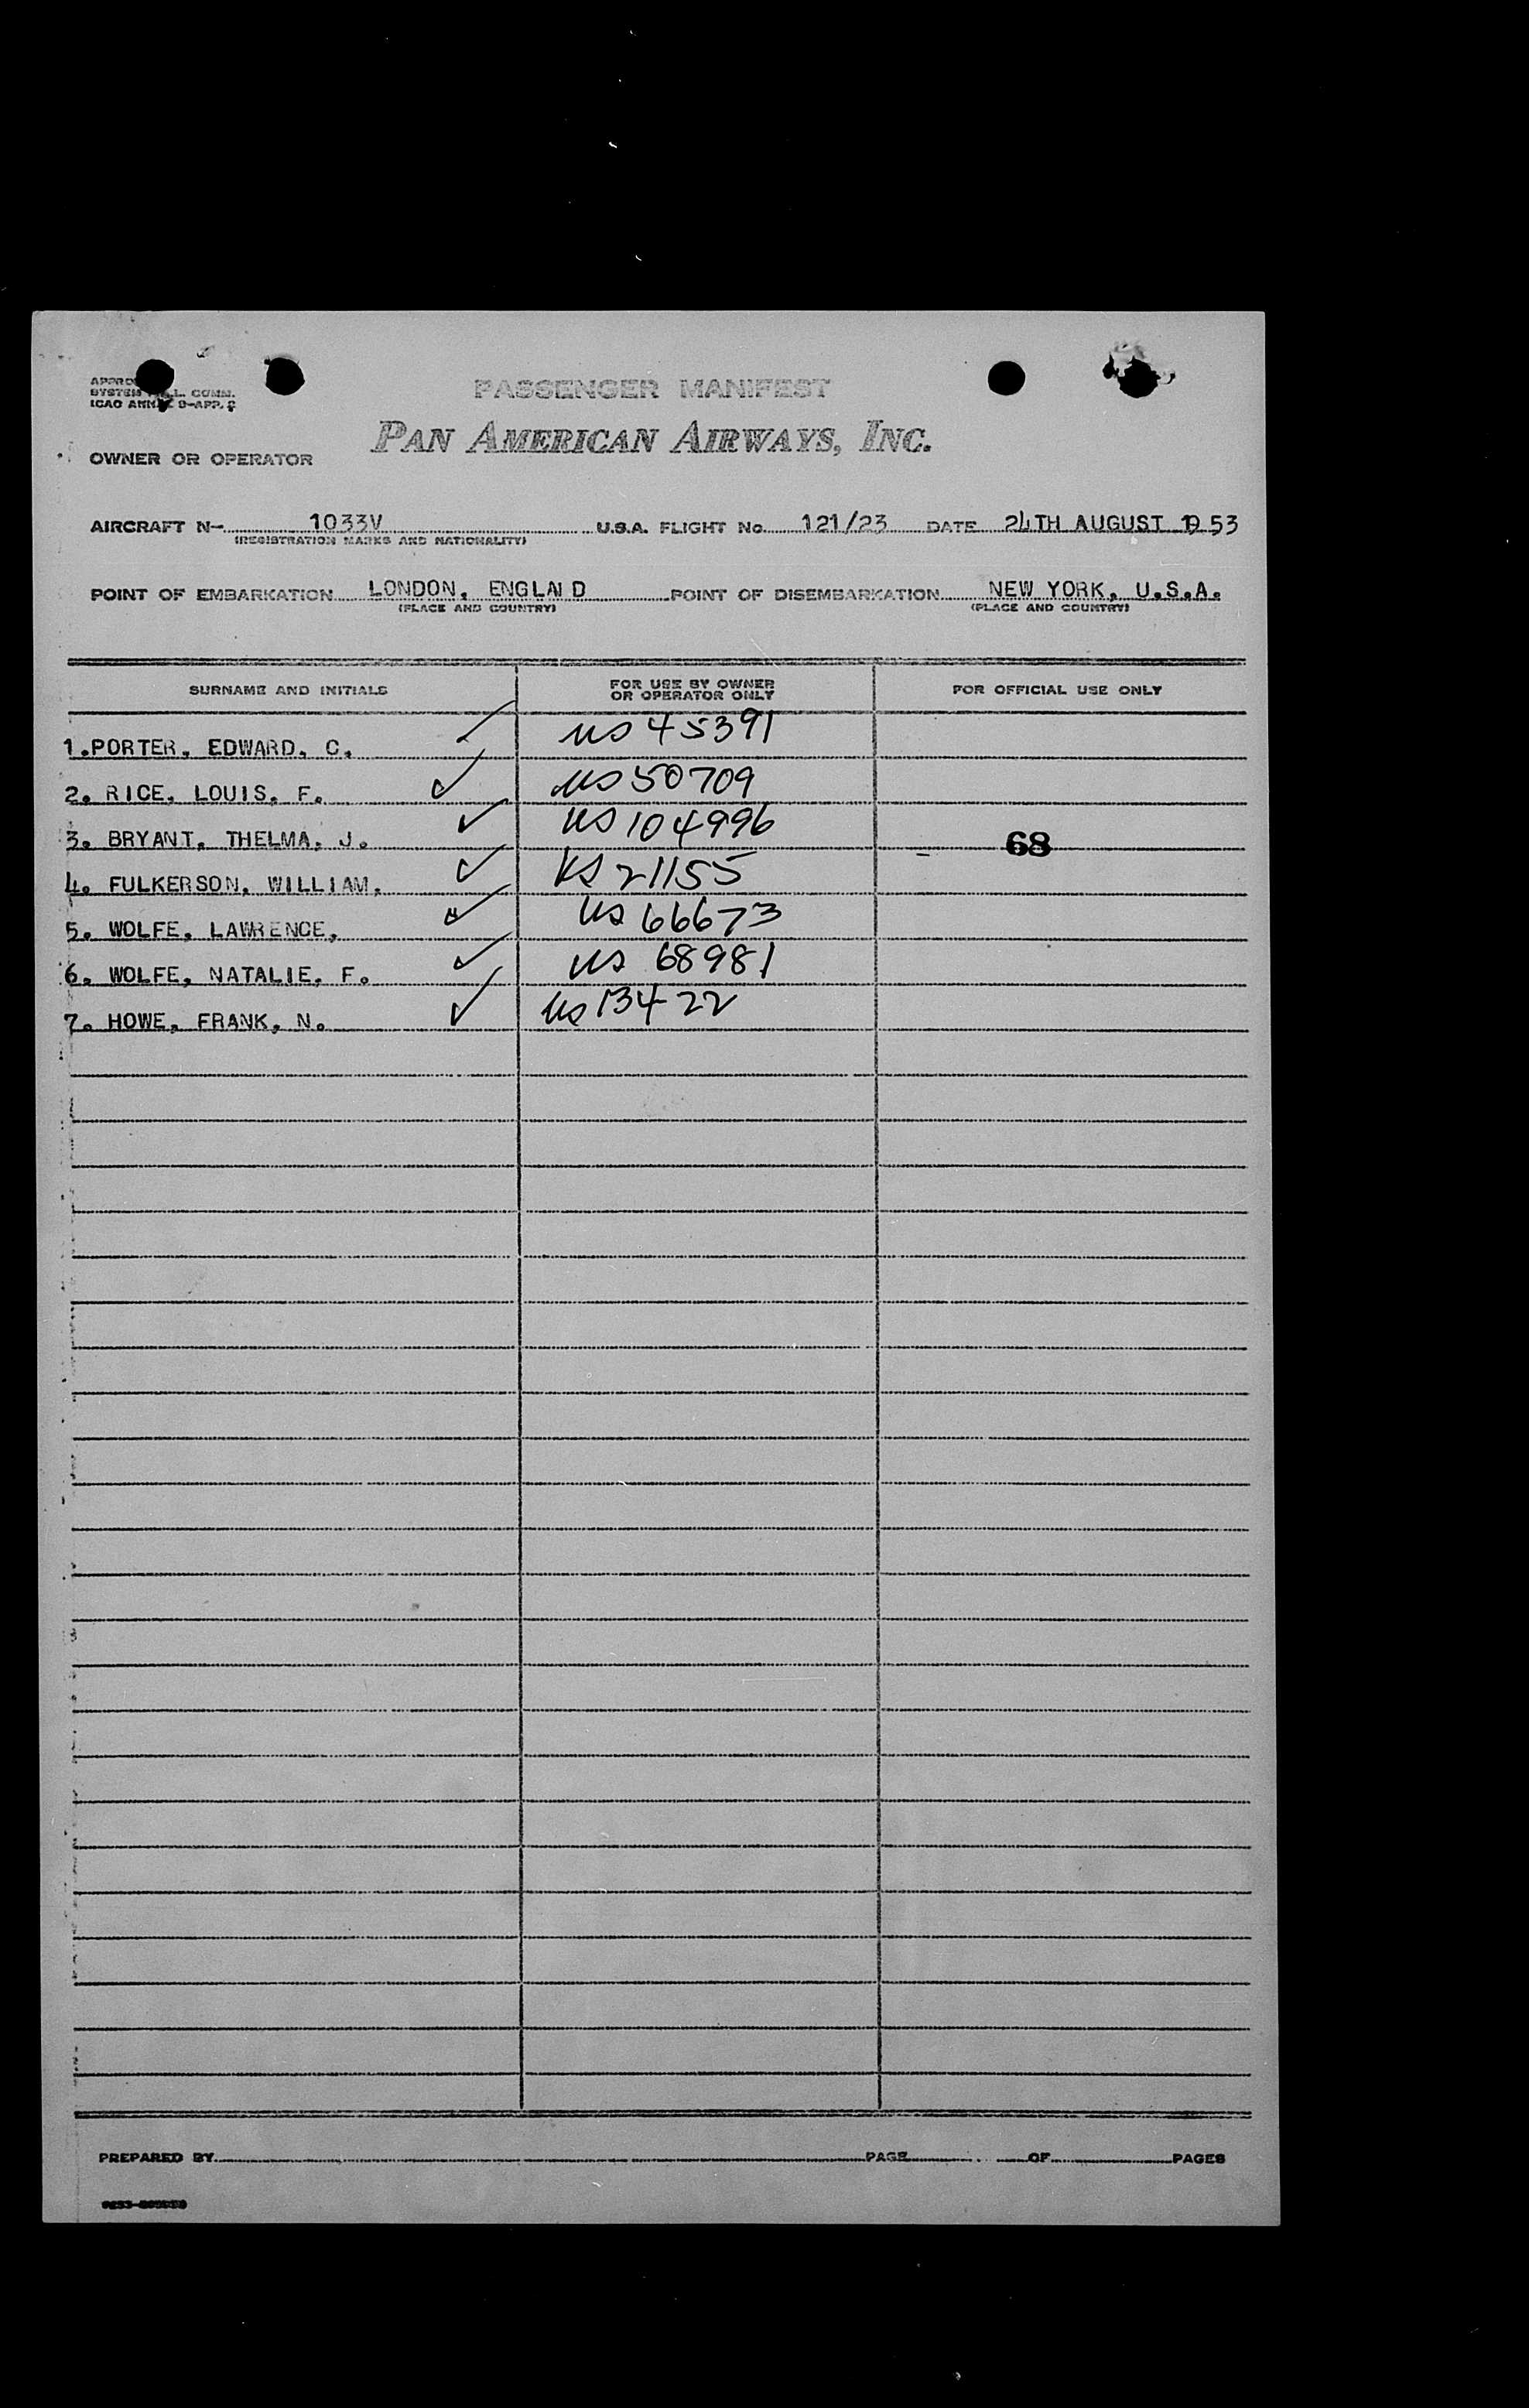 PASSENGER MANIFEST
PAN AMERICAN AIRWAYS, INC.
OWNER OR OPERATOR
AIRCRAFT N- 1033V U.S.A. FLIGHT No. 121/23 DATE 24TH AUGUST 1953
(REGISTRATION MARKS AND NATIONALITY)
POINT OF EMBARKATION LONDON, ENGLAND POINT OF DISEMBARKATION NEW YORK, U.S.A.
(PLACE AND COUNTRY) (PLACE AND COUNTRY)
SURNAME AND INITIALS FOR USE BY OWNER OR OPERATOR ONLY FOR OFFICIAL USE ONLY
1.PORTER, EDWARD, C. US 45391
2. RICE, LOUIS, F. US 50709
3. BRYANT, THELMA, J. US 104996
68
4. FULKERSON, WILLIAM, US 21155
5. WOLFE, LAWRENCE, US 66673
6. WOLFE, NATALIE, F. US 68981
7. HOWE, FRANK, N. US 13422
PREPARED BY PAGE OF PAGES